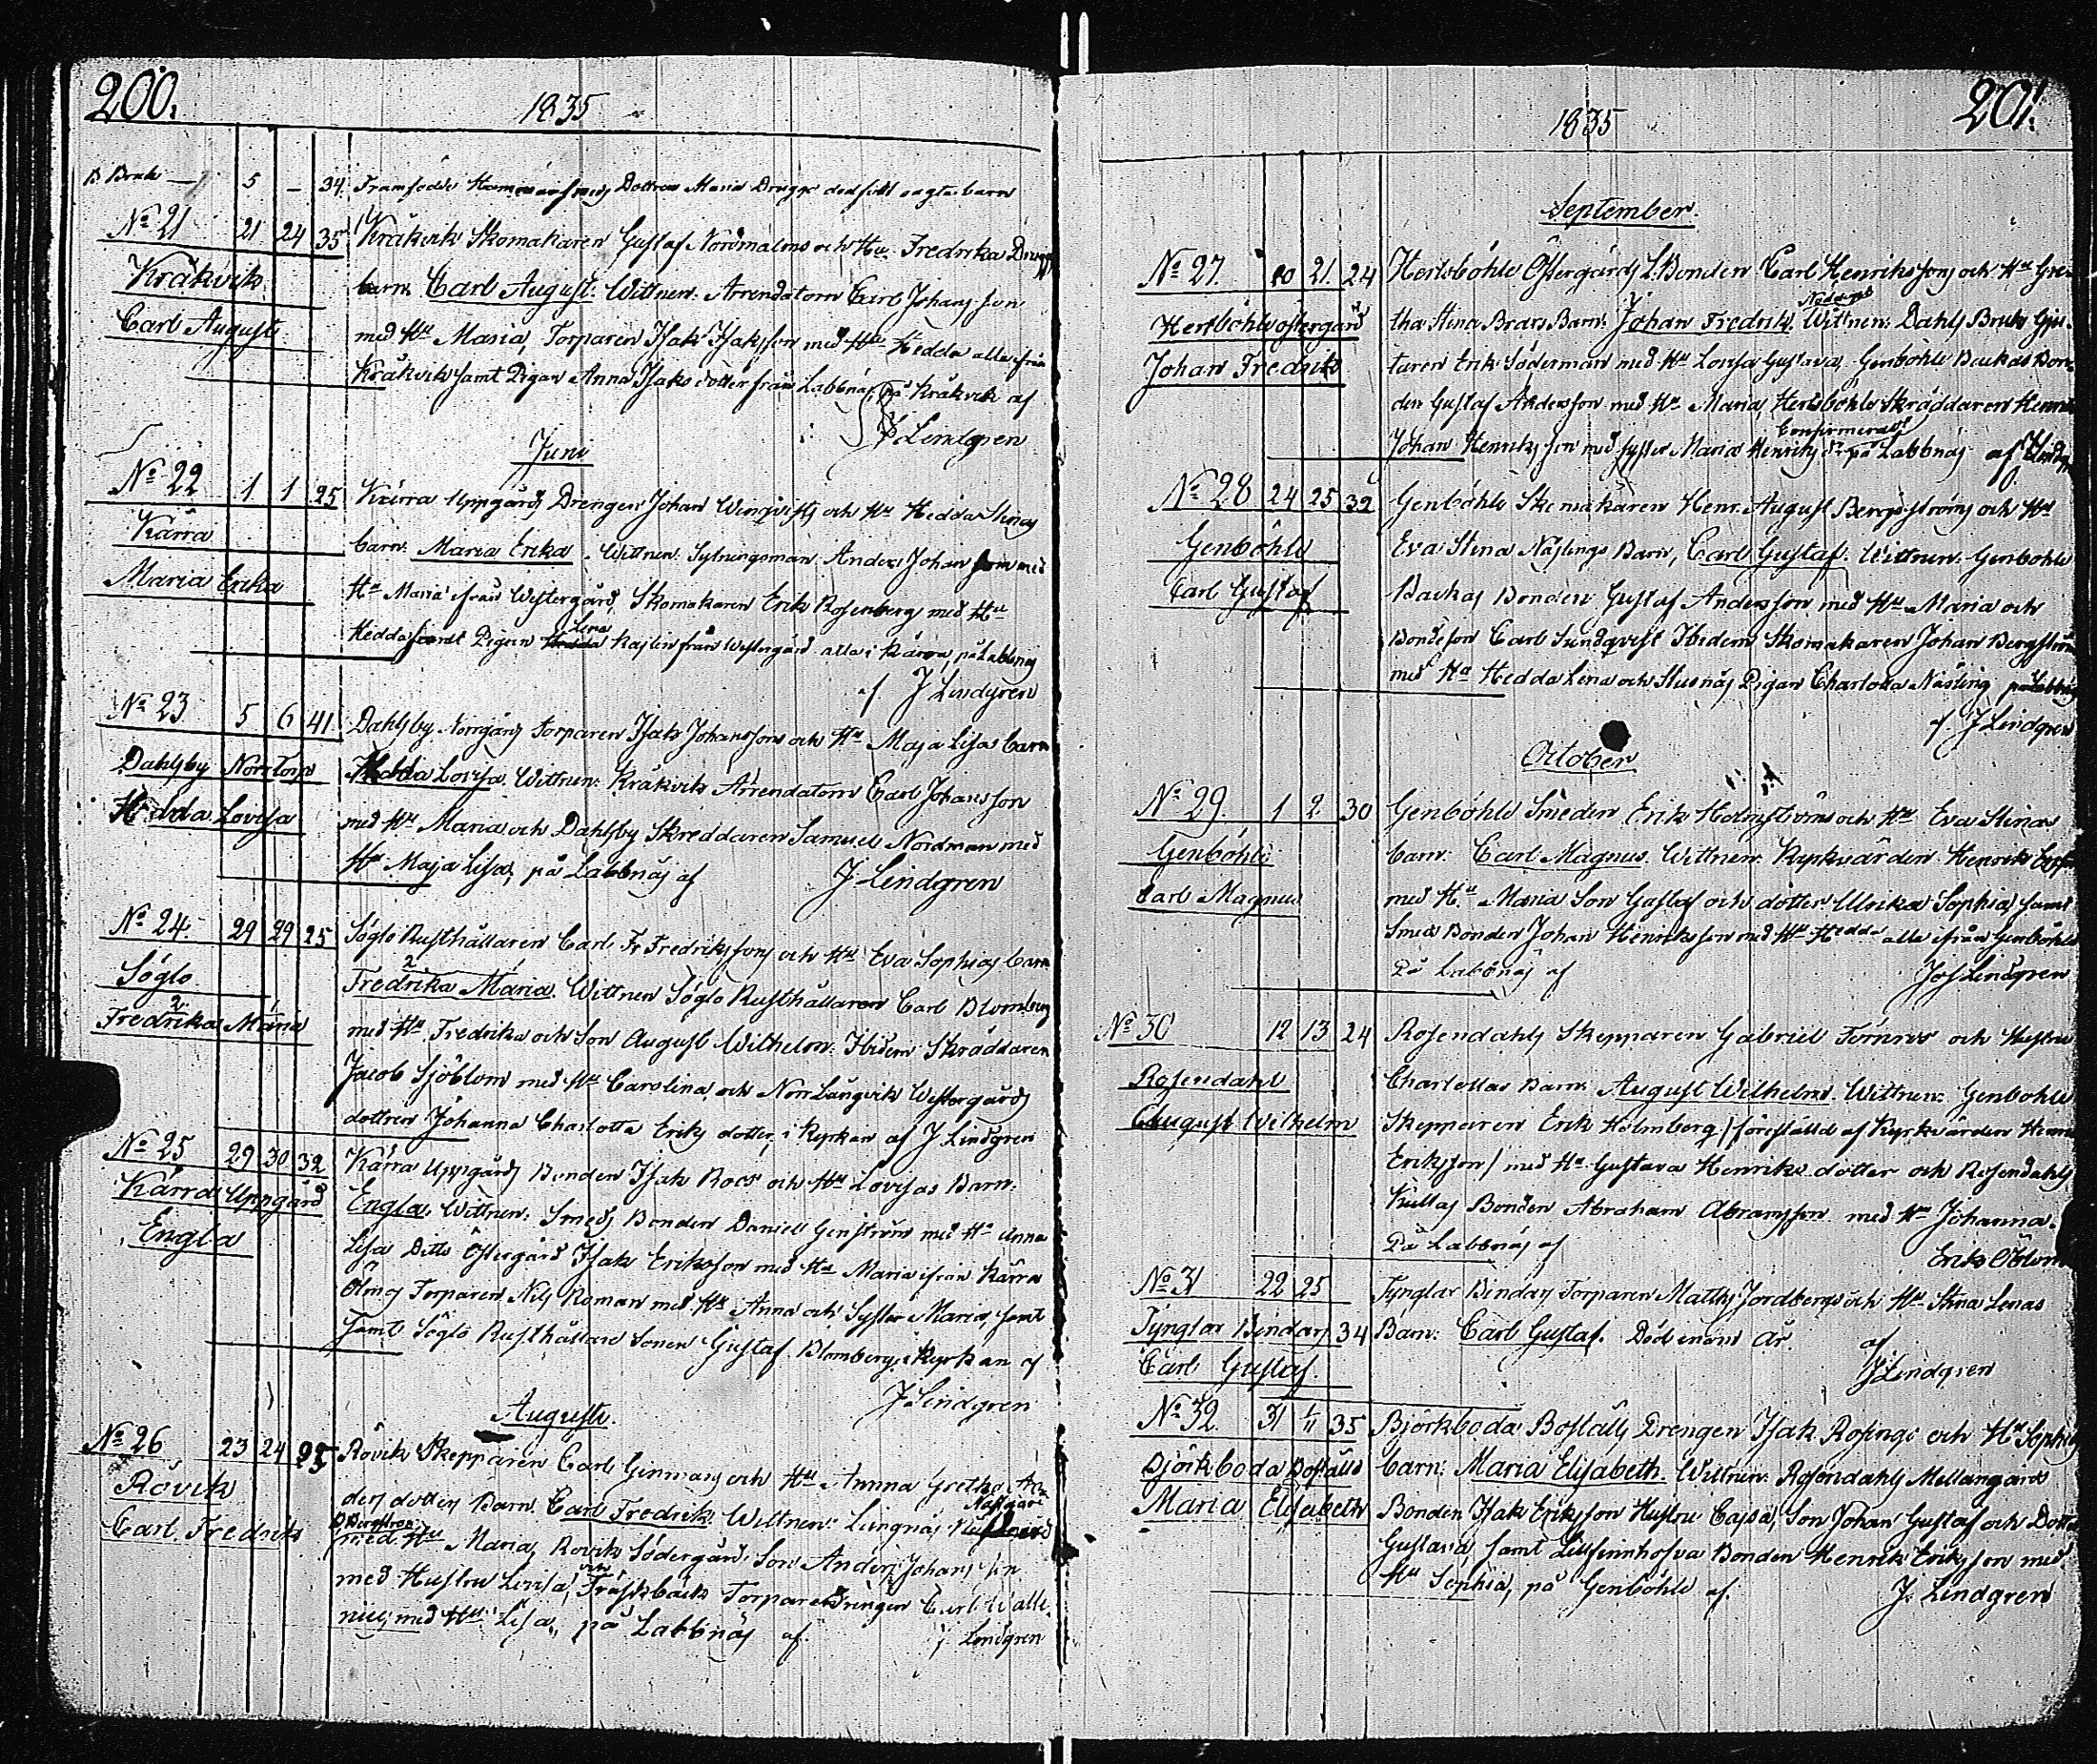 200.
1835
B Bruk — 5 — 34. Framfödde Dottren Maria Druggs dödfödt oägta barn
No 21 21 24 35 Kråkvik Skomakaren Gustaf Nordmalms och Hu. Fredrika
Kråkvik barn Carl August. Wittnen: Arrendatorn Carl Johansson
Carl August med Hu Maria, Torparen Isak Isaksson med Hu Hedda alla ifrån
Kråkvik samt Pigan Anna Isaks dotter från Labbnäs, på Kråkvik af
J Lindgren
Juni
No 22 1 1 25 Kärra Uppgårds Drengen Johan Winqvists och Hu Hedda Stinas
Kärra barn: Maria Erika. Wittnen: Sytningsman Anders Johansson med
Maria Erika Hu Maria ifrån Westergård, Skomakaren Erik Rosenberg med Hu
Lena
Hedda samt Pigan Kajlén från Westergård alla i Kärra, på Labbnäs
af J Lindgren
No 23 5 6 41 Dahlsby Norrgårds torparen Isak Johanssons och Hu Maja Lisas barn
Dahlsby Norrtorp Hedda Lovisa. Wittnen: Kråkvik Arrendatorn Carl Johansson
Hedda Lovisa med Hu Maria och Dahlsby Skreddaren Samuel Nordman med
Hu Maja Lisa, på Labbnäs af J. Lindgren
No 24. 29 29 25 Söglo Rusthållaren Carl Fr Fredrikssons och Hu Eva Sophias barn
Söglo Fredrika Maria. Wittnen Söglo Rusthållaren Carl Blomberg
Fredrika Maria med Hu Fredrika och Son August Wilhelm. Ibidem Skräddaren
Jacob Sjöblom med Hu Carolina och Norr Långvik Westergårds
dottren Johanna Charlotta Eriks dotter, i Kyrkan af J Lindgren
No 25 29 30 32 Kärra Uppgårds Bonden Isak Roos och Hu Lovisas Barn:
Kärra Uppgård Engla. Wittnen: Smeds Bonden Daniel Genström med Hu Anna
Engla Lisa Ditto Östergård Isak Eriksson med Hu Maria ifrån Kärra
Ölmos Torparen Nils Roman med Hu Anna och Syster Maria, samt
samt Söglo Rusthållare Sonen Gustaf Blomberg, i Kyrkan af
J. Lindgren
Augusti.
No 26 23 24 25 Rövik Skepparen Carl Ginmans och Hu Anna Gretha An
Rövik ders dotters Barn. Carl Fredrik. Wittnen: Lungnäs
Carl Fredrik med Hu Maria, Rövik Södergård Son Anders Johansson
med Hustru Lovisa, Träskback Torpare drängen Carl Walle
nius med Hu Lisa, på Labbnäs af. J Lindgren
201.
1835
September.
No 27. 20 21. 24 Hertsböhle Östergårds L. Bonden Carl Henrikssons och Hu Gre
Nöddöpt
Hertsböhle östergård tha Stina Brars Barn: Johan Fredrik. Wittnen: Dahls Bruk Gju
Johan Fredrik taren Erik Söderman med Hu Lovisa Gustava, Genböhle Backas Bon
den Gustaf Andersson med Hu Maria, Hertsböhle Skräddaren
Confirmerad
Johan Henriksson med syster Maria Henriks dr på Labbnäs af
No 28 24 25 32 Genböhle Skomakaren Henr. August Bergströms och Hu
Genböhle Eva Stina Näslings Barn, Carl Gustaf. Wittnen: Genböhle
Carl Gustaf Backas Bonden Gustaf Andersson med Hu Maria och
Bondeson Carl Sundqvist Ibidem Skomakaren Johan Bergström
med Hu Hedda Lena och Stusnäs Pigan Charlotta Näsling på Labbnäs
af. J Lindgren
October
No 29. 1 2. 30 Genböhle Smeden Erik Holmströms och Hu Eva Stinas
Genböhle barn: Carl Magnus. Wittnen: Kyrkvärden Henrik
Carl Magnus med Hu Maria Son Gustaf och dotter Ulrika Sophia samt
Smeds Bonden Johan Henriksson med Hu Hedda alla ifrån Genböhle
På Labbnäs af Jos Lindgren
No 30 12 13 24 Rosendahls Skepparen Gabriel Törnros och Hustru
Rosendahl Charlottas Barn. August Wilhelm. Wittnen: Genböhle
August Wilhelm Skepparen Erik Holmberg / föreställd af Kyrkvärden
Eriksson / med Hu Gustava Henriks dotter och Rosendahls
Kullas Bonden Abraham Abramsson med Hu Johanna.
På Labbnäs af Erik Öblom
No 31 22 25 Tynglax Bindars Torparen Matths Jordbergs och Hu Stina Lenas
Tynglax Bindars 34 Barn: Carl Gustaf. Död inom År. af
Carl Gustaf. J Lindgren
No 32. 31 1/11 35 Björkboda Boställs Drengen Isak Rosings och Hu Sophias
Björkboda Boställe barn: Maria Elisabeth. Wittnen: Rosendahls Mellangårds
Maria Elisabeth Bonden Isak Eriksson Hustru Cajsa, Son Johan Gustaf och Dotter
Gustava, samt Lillfinnhofva Bonden Henrik Eriksson med
Hu Sophia, på Genböhle af. J. Lindgren